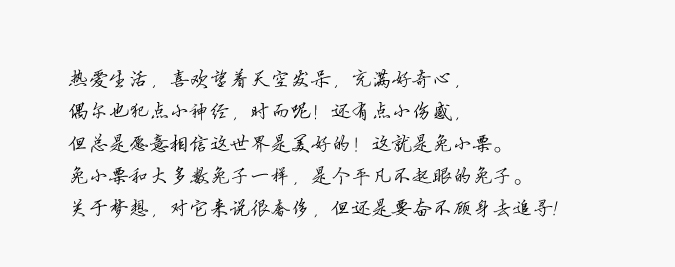 热爱生活，喜欢望着天空发呆，充满好奇心，
偶尔也犯点小神经，时而呢！还有点小伤感，
但总是愿意相信这世界是美好的！这就是兔小栗。
兔小栗和大多数兔子一样，是个平凡不起眼的兔子。
关于梦想，对它来说很奢侈，但还是要奋不顾身去追寻！